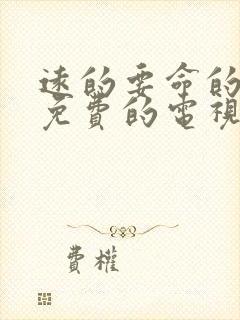 速的要命的
免費的電視
費權